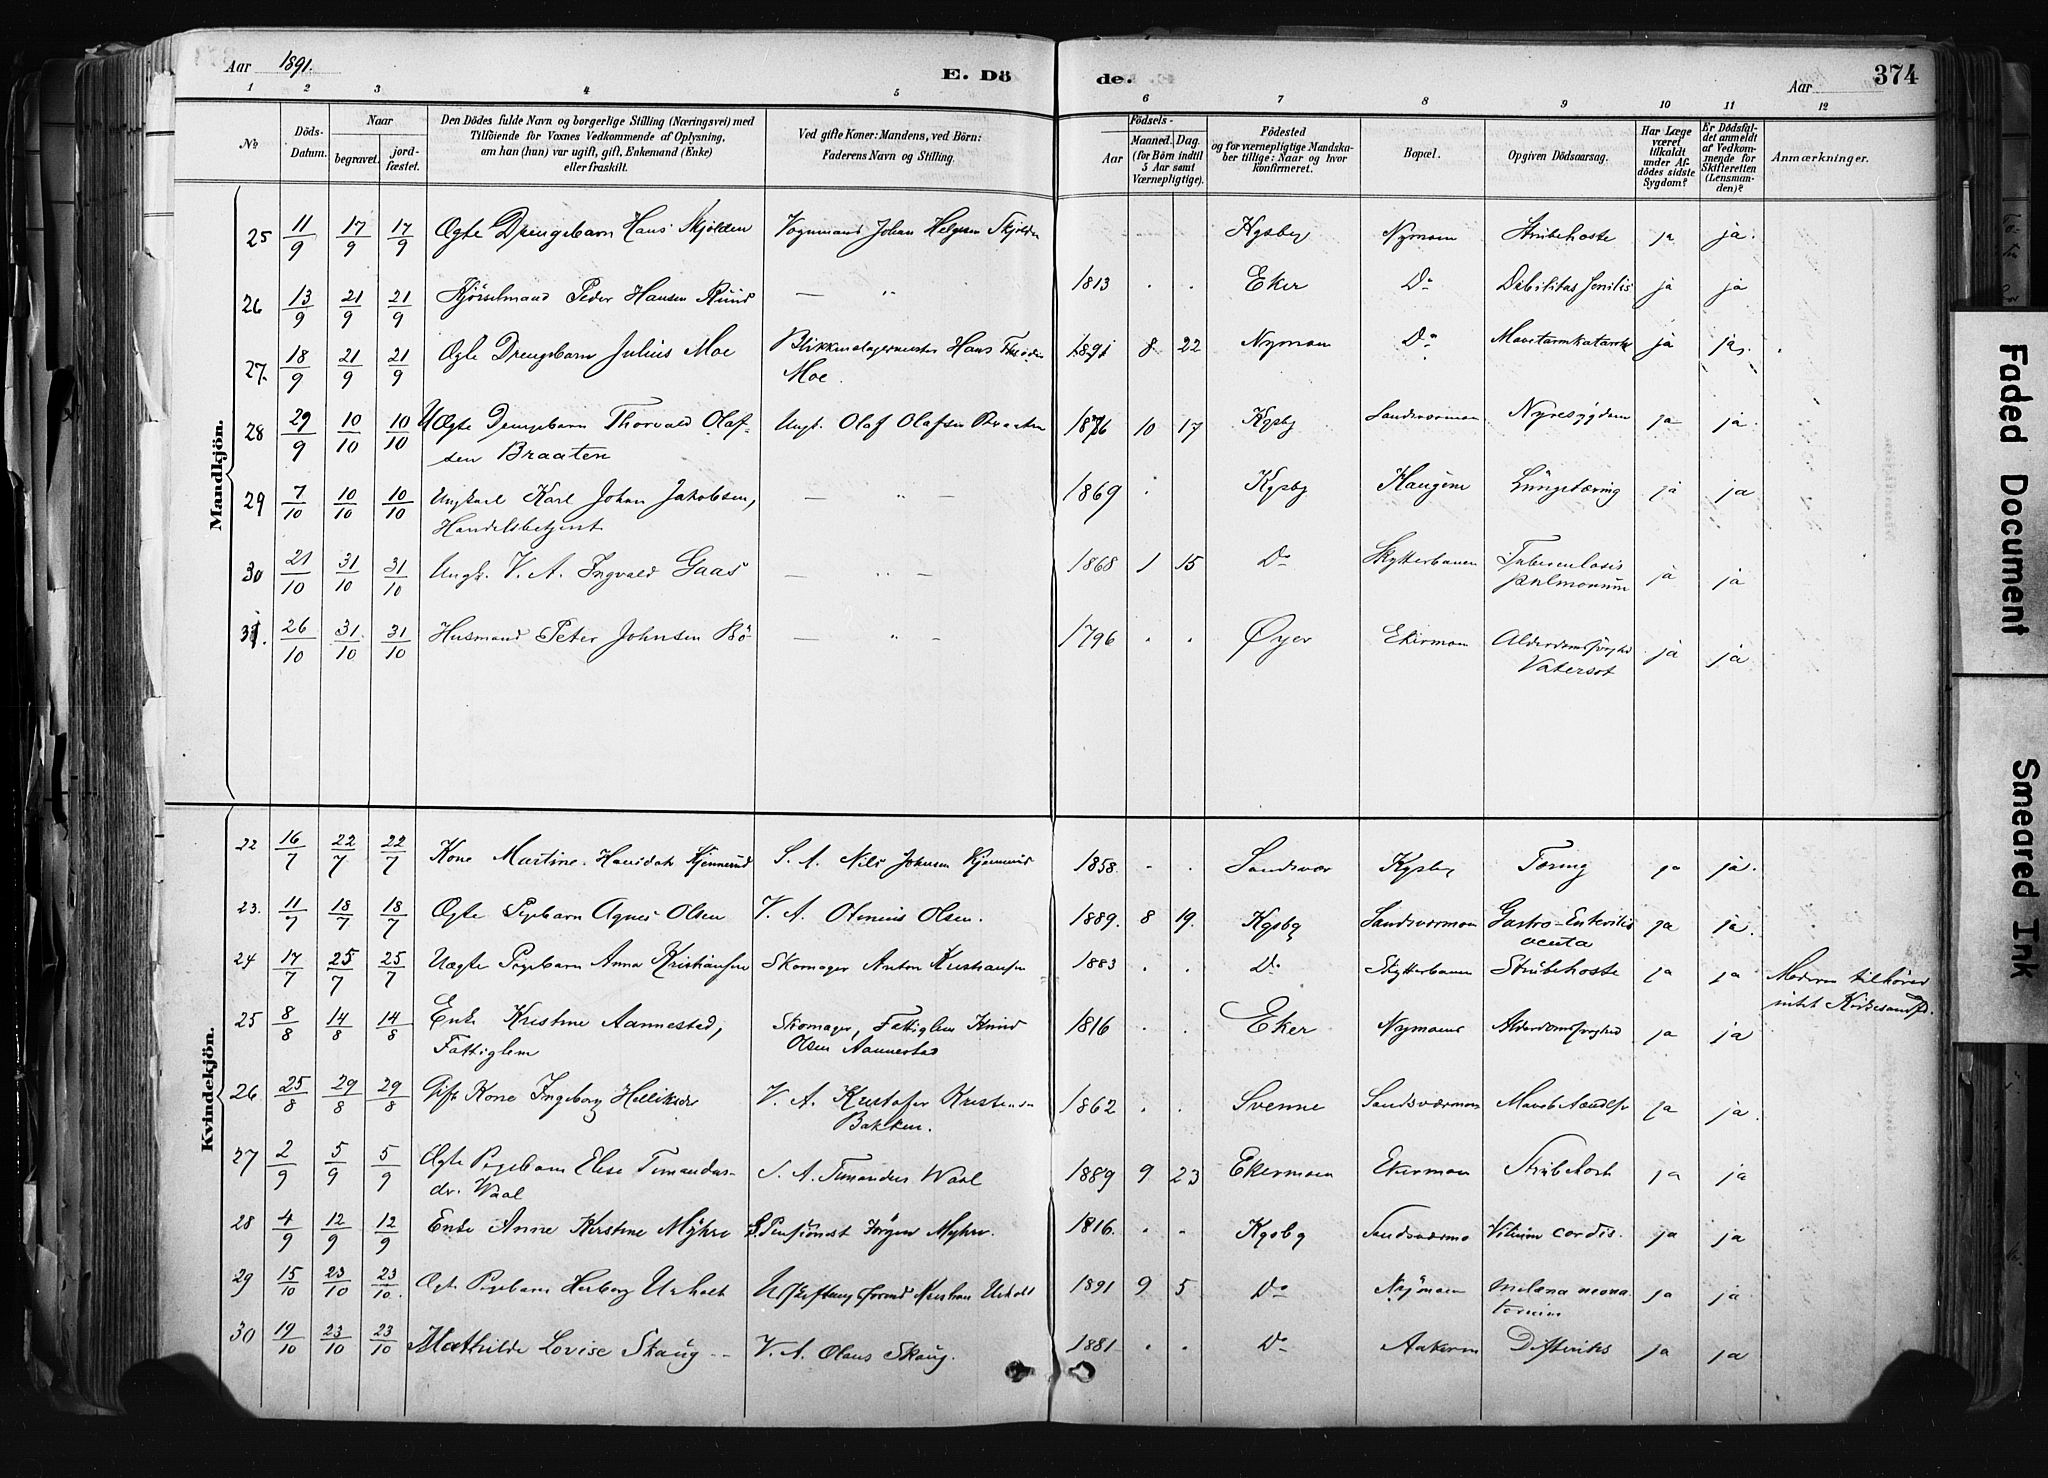 Aar 1891. E. Dö de. Aar 374
1 2 3 4 5 6 7 8 9 10 11 12
No Döds-Datum. Naar begravet. jordfæstet. Den Dödes fulde Navn og borgerlige Stilling (Næringsvei) med Tilföiende for Voxnes Vedkommende af Oplysning, om han (hun) var ugift, gift, Enkemand (Enke) eller fraskilt. Ved gifte Koner: Mandens, ved Börn: Faderens Navn og Stilling. Födsels- Aar Maaned. Dag. (for Börn indtil 5 Aar samt Værnepligtige). Födested og for værnepligtige Mandskaber tillige: Naar og hvor konfirmeret. Bopæl. Opgiven Dödsaarsag. Har Læge været tilkaldt under Afdödes sidste Sygdom? Er Dödsfaldet anmeldt af Vedkommende for Skifteretten (Lensmanden)? Anmærkninger.
Mandkjön.
25 11/9 17/9 17/9 Ægte Drengebarn Hans Skjölden Vognmand Johan Helgesen Skjölden Kgsberg Nymoen Strubehoste ja ja.
26 13/9 21/9 21/9 Kjörselmand Peder Hansen Ruud — „ 1813 . . Eker Do Debilitas senilis ja ja
27. 18/9 21/9 21/9 Ægte Drengebarn Julius Moe Blikkenslagermester Hans 1891 8 22 Nymoen Do Mavetarmkatarrh ja ja.
Moe.
28 29/9 10/10 10/10 Uægte Drengebarn Thorvald Olaf- Ungk. Olaf Olafsen Braaten 1876 10 17 Kgsbg Sandsværmoen Nyresygdom ja ja.
sen Braaten
29 7/10 10/10 10/10 Ungkarl Karl Johan Jakobsen, — „ — 1869 . Kgsbg Haugene Lungetæring ja ja
Handelsbetjent
30 21/10 31/10 31/10 Ungk. V. A. Ingvald Gaas — „ — 1868 1 15 Do Skytterbanen Tuberculosis ja ja
pulmonum
31. 26/10 31/10 31/10 Husmand Peter Johnsen Bö — „ - 1796 . . Öyer Ekermoen Alderdomssvaghed ja ja
Vatersot
Kvindekjön.
22 16/7 22/7 22/7 Kone Martine Kjennerud S. A. Nils Johnsen Kjennerud 1858. . . Sandsvær Kgsbg Tæring ja ja.
23. 11/7 18/7 18/7 Ægte Pigebarn Agnes Olsen V. A. Otenius Olsen. 1889. 8 19. Kgsbg Sandsværmoen Gastro-Enteritis ja ja.
acuta
24 17/7 25/7 25/7 Uægte Pigebarn Anna Kristiansen Skomager Anton Kristiansen 1883 . . Do Skytterbanen Strubehoste ja ja Moderen tilhörer
intet Kirkesamfd.
25 8/8 14/8 14/8 Enke Kristine Aannestad, Skomager, Fattiglem Knud 1816 . . Eker Nymoene Alderdomssvaghed ja ja
Fattiglem Olsen Aannestad
26 25/8 29/8 29/8 Gift Kone Ingeborg V. A. Kristofer Kristensen 1862 . . Svenne Sandsværmoen ja ja.
Bakken.
27 2/9 5/9 5/9 Ægte Pigebarn Elise Timandus- S. A. Timandus Waal 1889 9 23 Ekermoen Ekermoen Strubehoste ja ja
dr. Waal
28 4/9 12/9 12/9 Enke Anne Kirstine Myhre S. Pensionist Jörgen Myhre. 1816. . . Kgsbg Sandsværmo Vitium cordis. ja ja
29 15/10 23/10 23/10. Ægte Pigebarn Herborg Urholt Kristian Urholt 1891 9 5 Do Nymoen Melæna neona ja ja
torum
30 19/10 23/10 23/10 Mathilde Lovise Skaug -- V. A. Olaus Skaug. 1881 . . Do Aakeren Difteritis ja ja
Faded Document
Smeared Ink